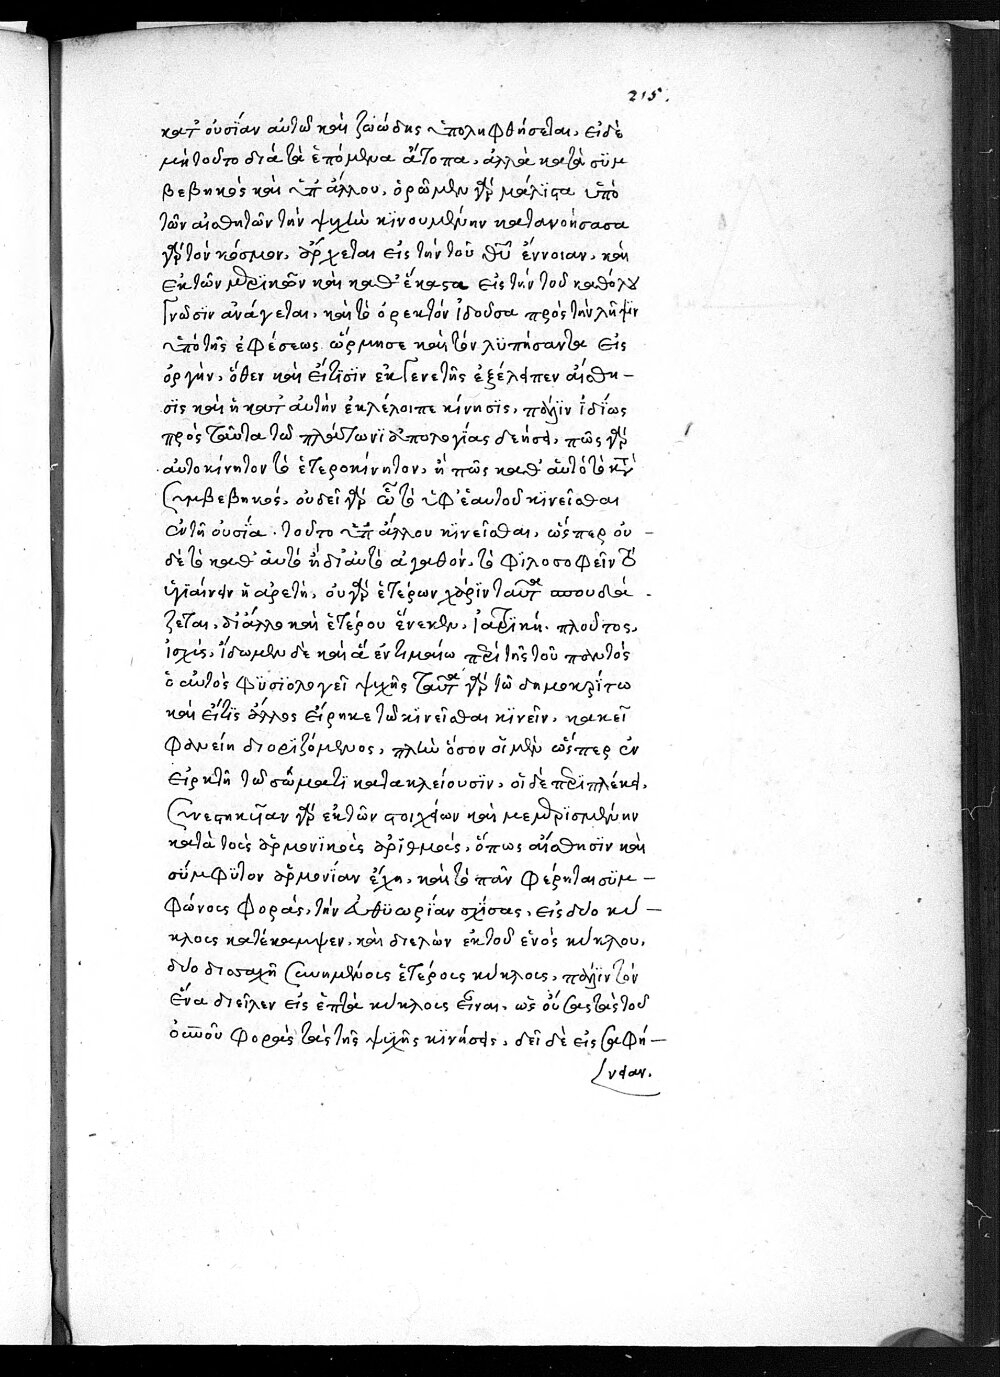 215.
κατ' οὐσίαν αὐτῶ καὶ ζωώδης ὑποληφθήσεται, εἰ δὲ
μὴ τοῦτο διὰ τὰ ἑπόμενα ἄτοπα, ἀλλὰ κατὰ συμ
βεβηκὸς καὶ ὑπ' ἄλλου, ὁρῶμεν γὰρ μάλιστα ὑπὸ
τῶν αἰσθητῶν τὴν ψυχὴν κινουμένην κατανοήσασα
γὰρ τὸν κόσμον, ἄρχεται εἰς τὴν τοῦ θεοῦ ἔννοιαν, καὶ
ἐκ τῶν μερικῶν καὶ καθ' ἕκαστα εἰς τὴν τοῦ καθόλου
γνῶσιν ἀνάγεται, καὶ τὸ ὀρεκτὸν ἰδοῦσα πρὸς τὴν λῆψιν
ὑπὸ τῆς ἐφέσεως ὥρμησε καὶ τὸν λυπήσαντα εἰς
ὀργὴν, ὅθεν καὶ εἴ τισιν ἐκ γενετῆς ἐξέλιπεν αἴσθη-
σις καὶ ἡ κατ' αὐτὴν ἐκλέλοιπε κίνησις, πάλιν ἰδίως
πρὸς ταῦτα τῶ πλάτωνι ἀπολογίας δεήσει, πῶς γὰρ
αὐτοκίνητον τὸ ἑτεροκίνητον, ἢ πῶς καθ' αὑτὸ τὸ κατὰ
συμβεβηκός, οὐ δεῖ γὰρ ὧ τὸ ὑφ' ἑαυτοῦ κινεῖσθαι
ἐν τῆ οὐσία. τοῦτο ὑπ' ἄλλου κινεῖσθαι, ὥσπερ οὐ-
δὲ τὸ καθ' αὑτὸ ἢ δι' αὑτὸ ἀγαθὸν, τὸ φιλοσοφεῖν τὸ
ὑγιαίνειν ἢ ἀρετὴ, οὐ γὰρ ἑτέρων χάριν ταῦτα σπουδά-
ζεται, δι' ἄλλο καὶ ἑτέρου ἕνεκεν, ἰατρικὴ. πλοῦτος,
ἰσχύς, ἴδωμεν δὲ καὶ ἃ ἐν τιμαίω περὶ τῆς τοῦ παντὸς
ὁ αὐτὸς φυσιολογεῖ ψυχῆς ταῦτα γὰρ τῶ δημοκρίτω
καὶ εἴ τις ἄλλος εἴρηκε τῶ κινεῖσθαι κινεῖν, κἀκεῖ
φανείη διοριζόμενος, πλὴν ὅσον οἱ μὲν ὥσπερ ἐν
εἱρκτῆ τῶ σώματι κατακλείουσιν, οἱ δὲ περιπλέκει,
συνεστηκυῖαν γὰρ ἐκ τῶν στοιχείων καὶ μεμερισμένην
κατὰ τοὺς ἁρμονικοὺς ἀριθμοὺς, ὅπως αἴσθησίν καὶ
σύμφυτον ἁρμονίαν ἔχη, καὶ τὸ πᾶν φέρηται συμ-
φώνους φορὰς, τὴν εὐθυωρίαν σχίσας, εἰς δύο κύ-
κλους κατέκαμψεν, καὶ διελὼν ἐκ τοῦ ἑνὸς κύκλου,
δύο δισσαχῆ συνημμένους ἑτέρους κύκλους, πάλιν τὸν
ἕνα διεῖλεν εἰς ἑπτὰ κύκλους εἶναι, ὡς οὔσας τὰς τοῦ
οὐρανοῦ φορὰς τὰς τῆς ψυχῆς κινήσεις, δεῖ δὲ εἰς σαφή-
νειαν.